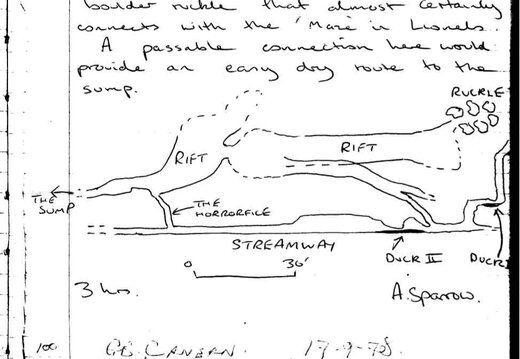 boulder ruckle that almost certainly
connects with the 'Maze' in Lionels.
A passable connection here would
provide an easy dry route to the
sump.
RUCKLE
RIFT
RIFT
THE SUMP
THE HORRORFILE
STREAMWAY
DUCK II
DUCK I
0 30'
3 hrs.
A. Sparrow.
100 GB CAVERN 17-9-78